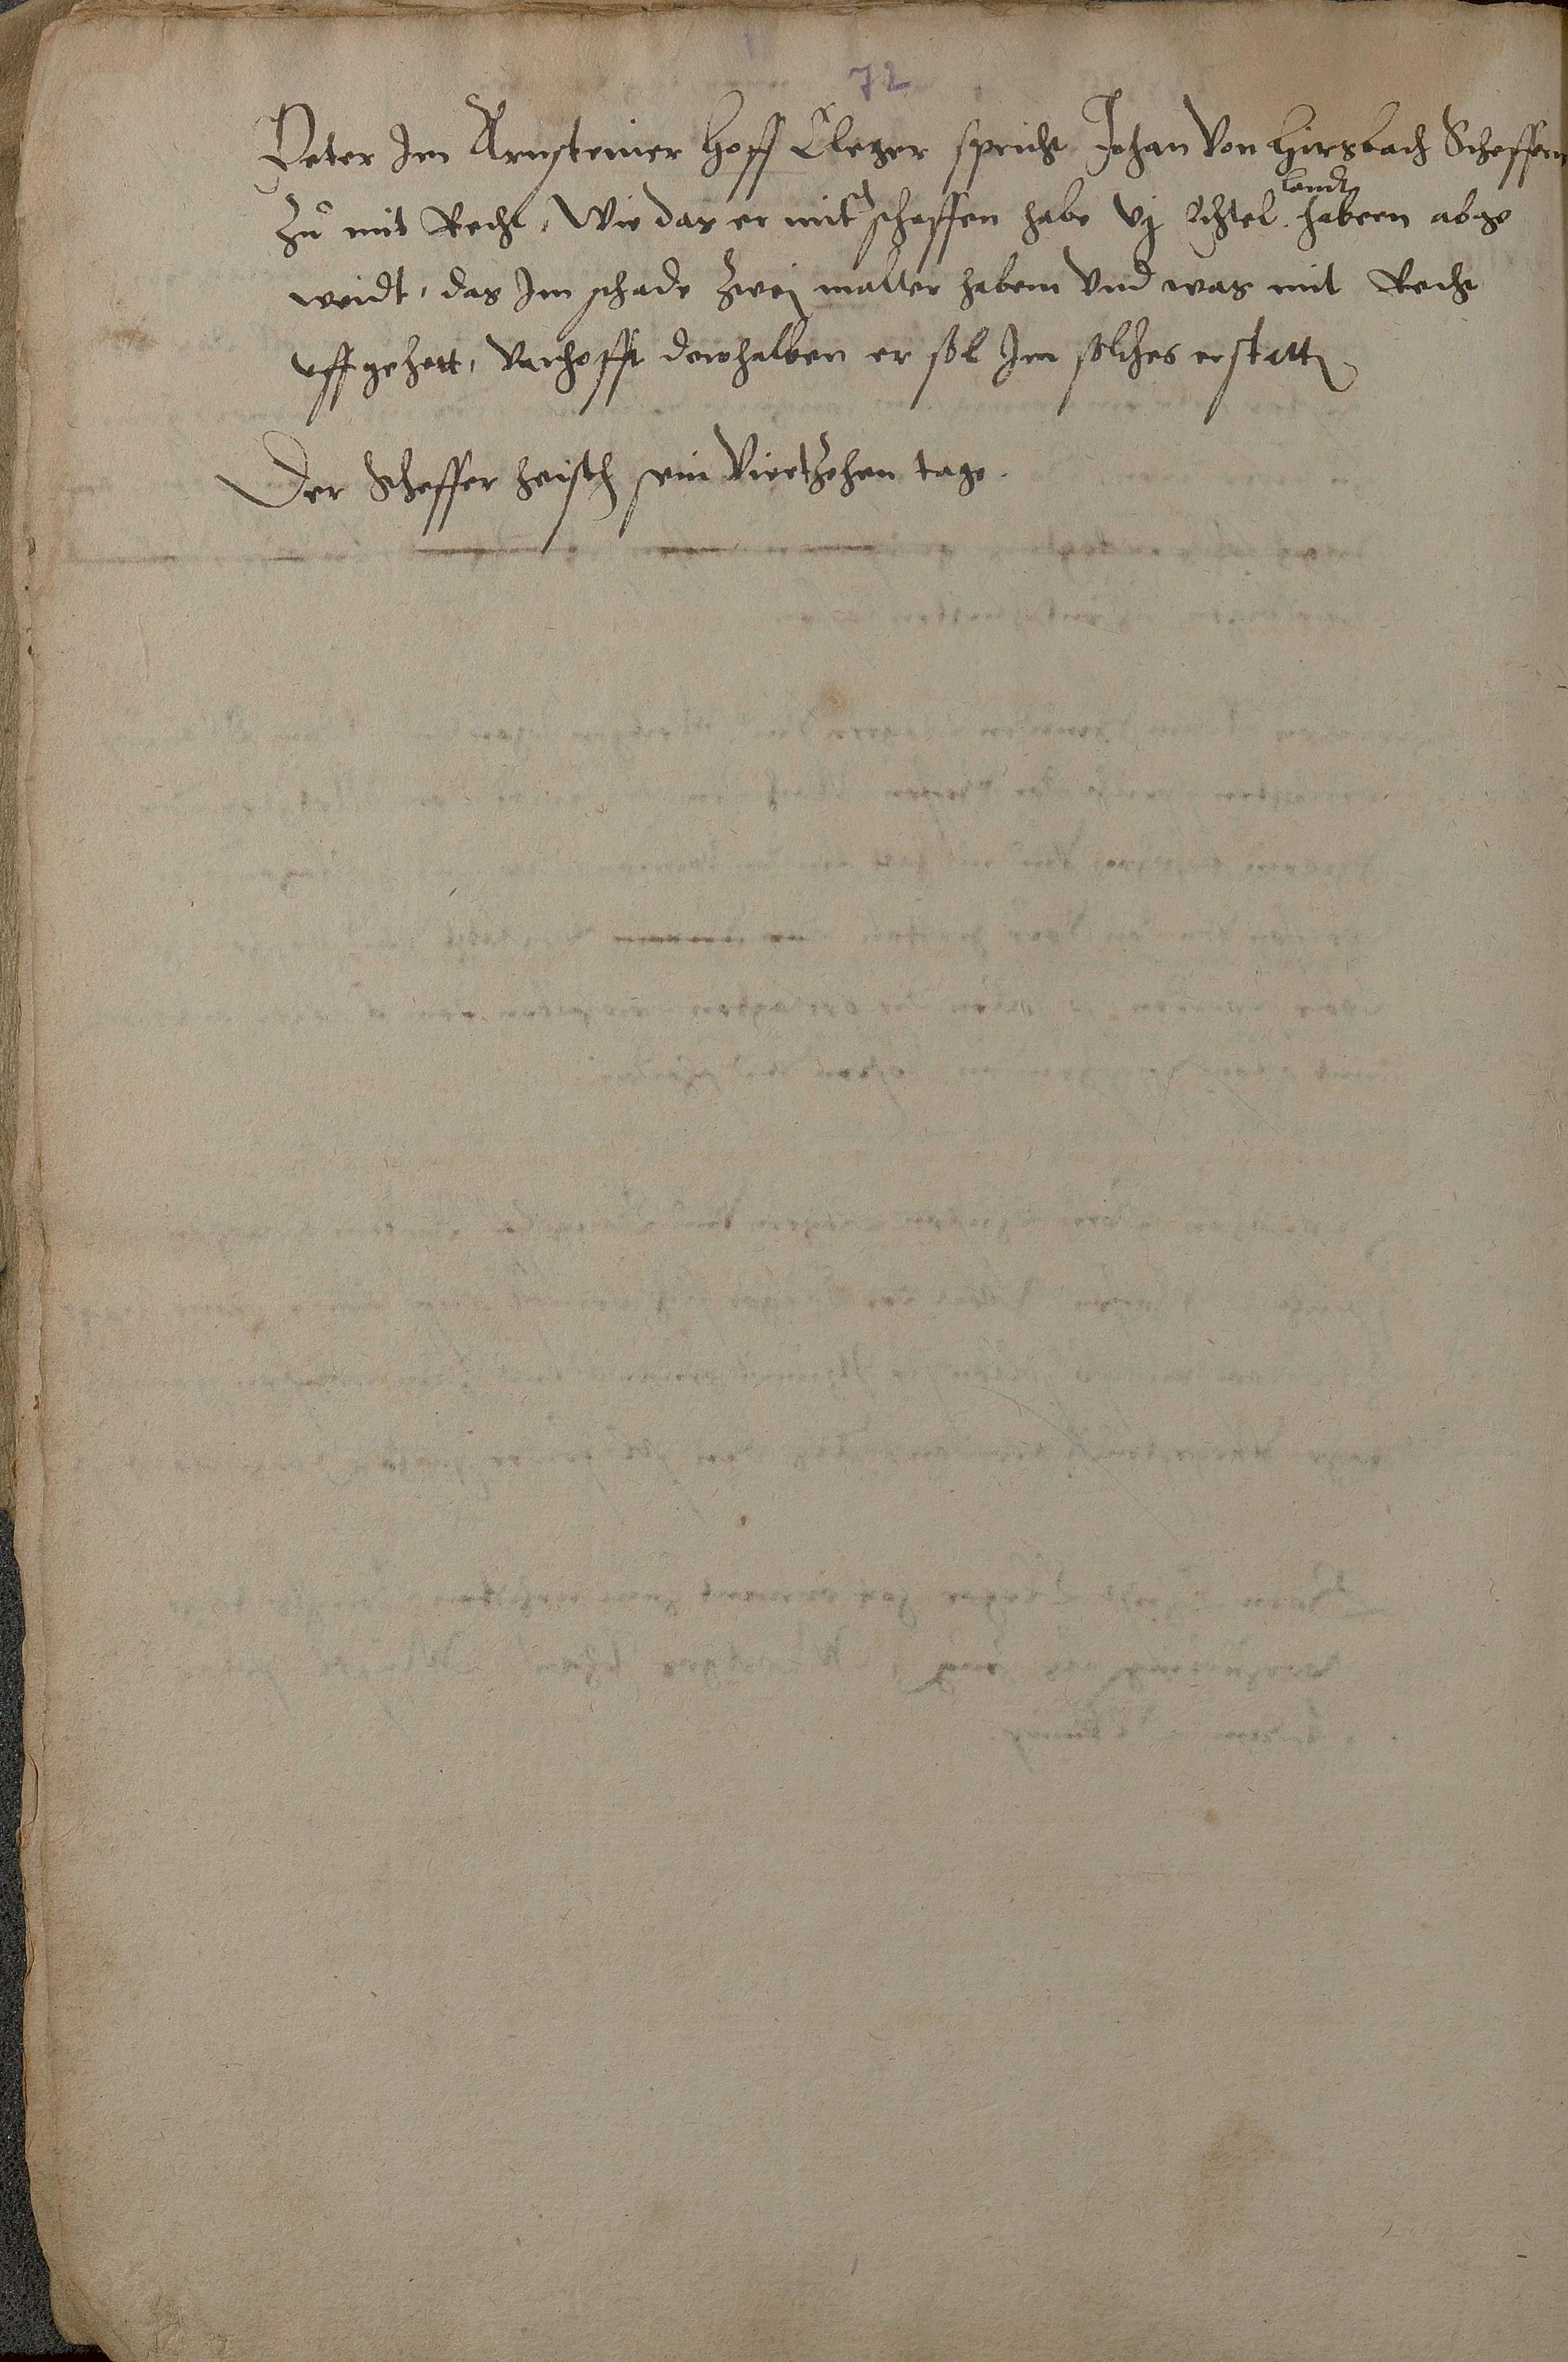 72
Peter Im Arnsteiner hoff Cleger spricht Johan von Hirsbach Scheffern
landt
zu mit Recht, Wie das er mit schaffen habe vj echtel habern abge
weidt, das Im schade zwej malter habern vnd was mit Recht
vffgehett, verhofft derohalben er sol Im solches erstatt
Der Scheffer heisch sein viertzehen tage.